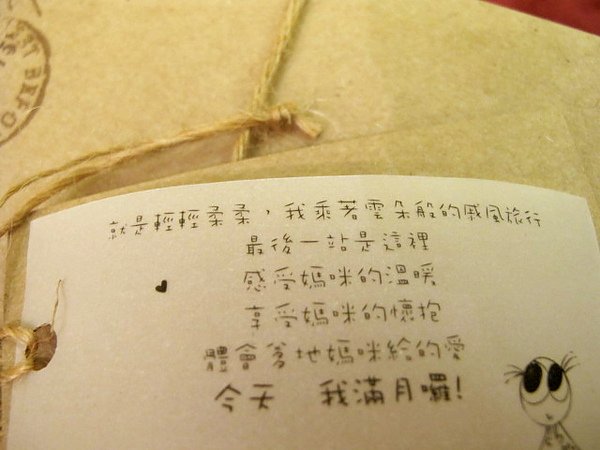 BEFO
就是輕輕柔柔，我乘著雲朵般的感風旅行
最後一站是這裡
感受媽咪的溫暖
享受媽咪的懷抱
體會爹地媽咪給的愛
今天 我滿月囉!